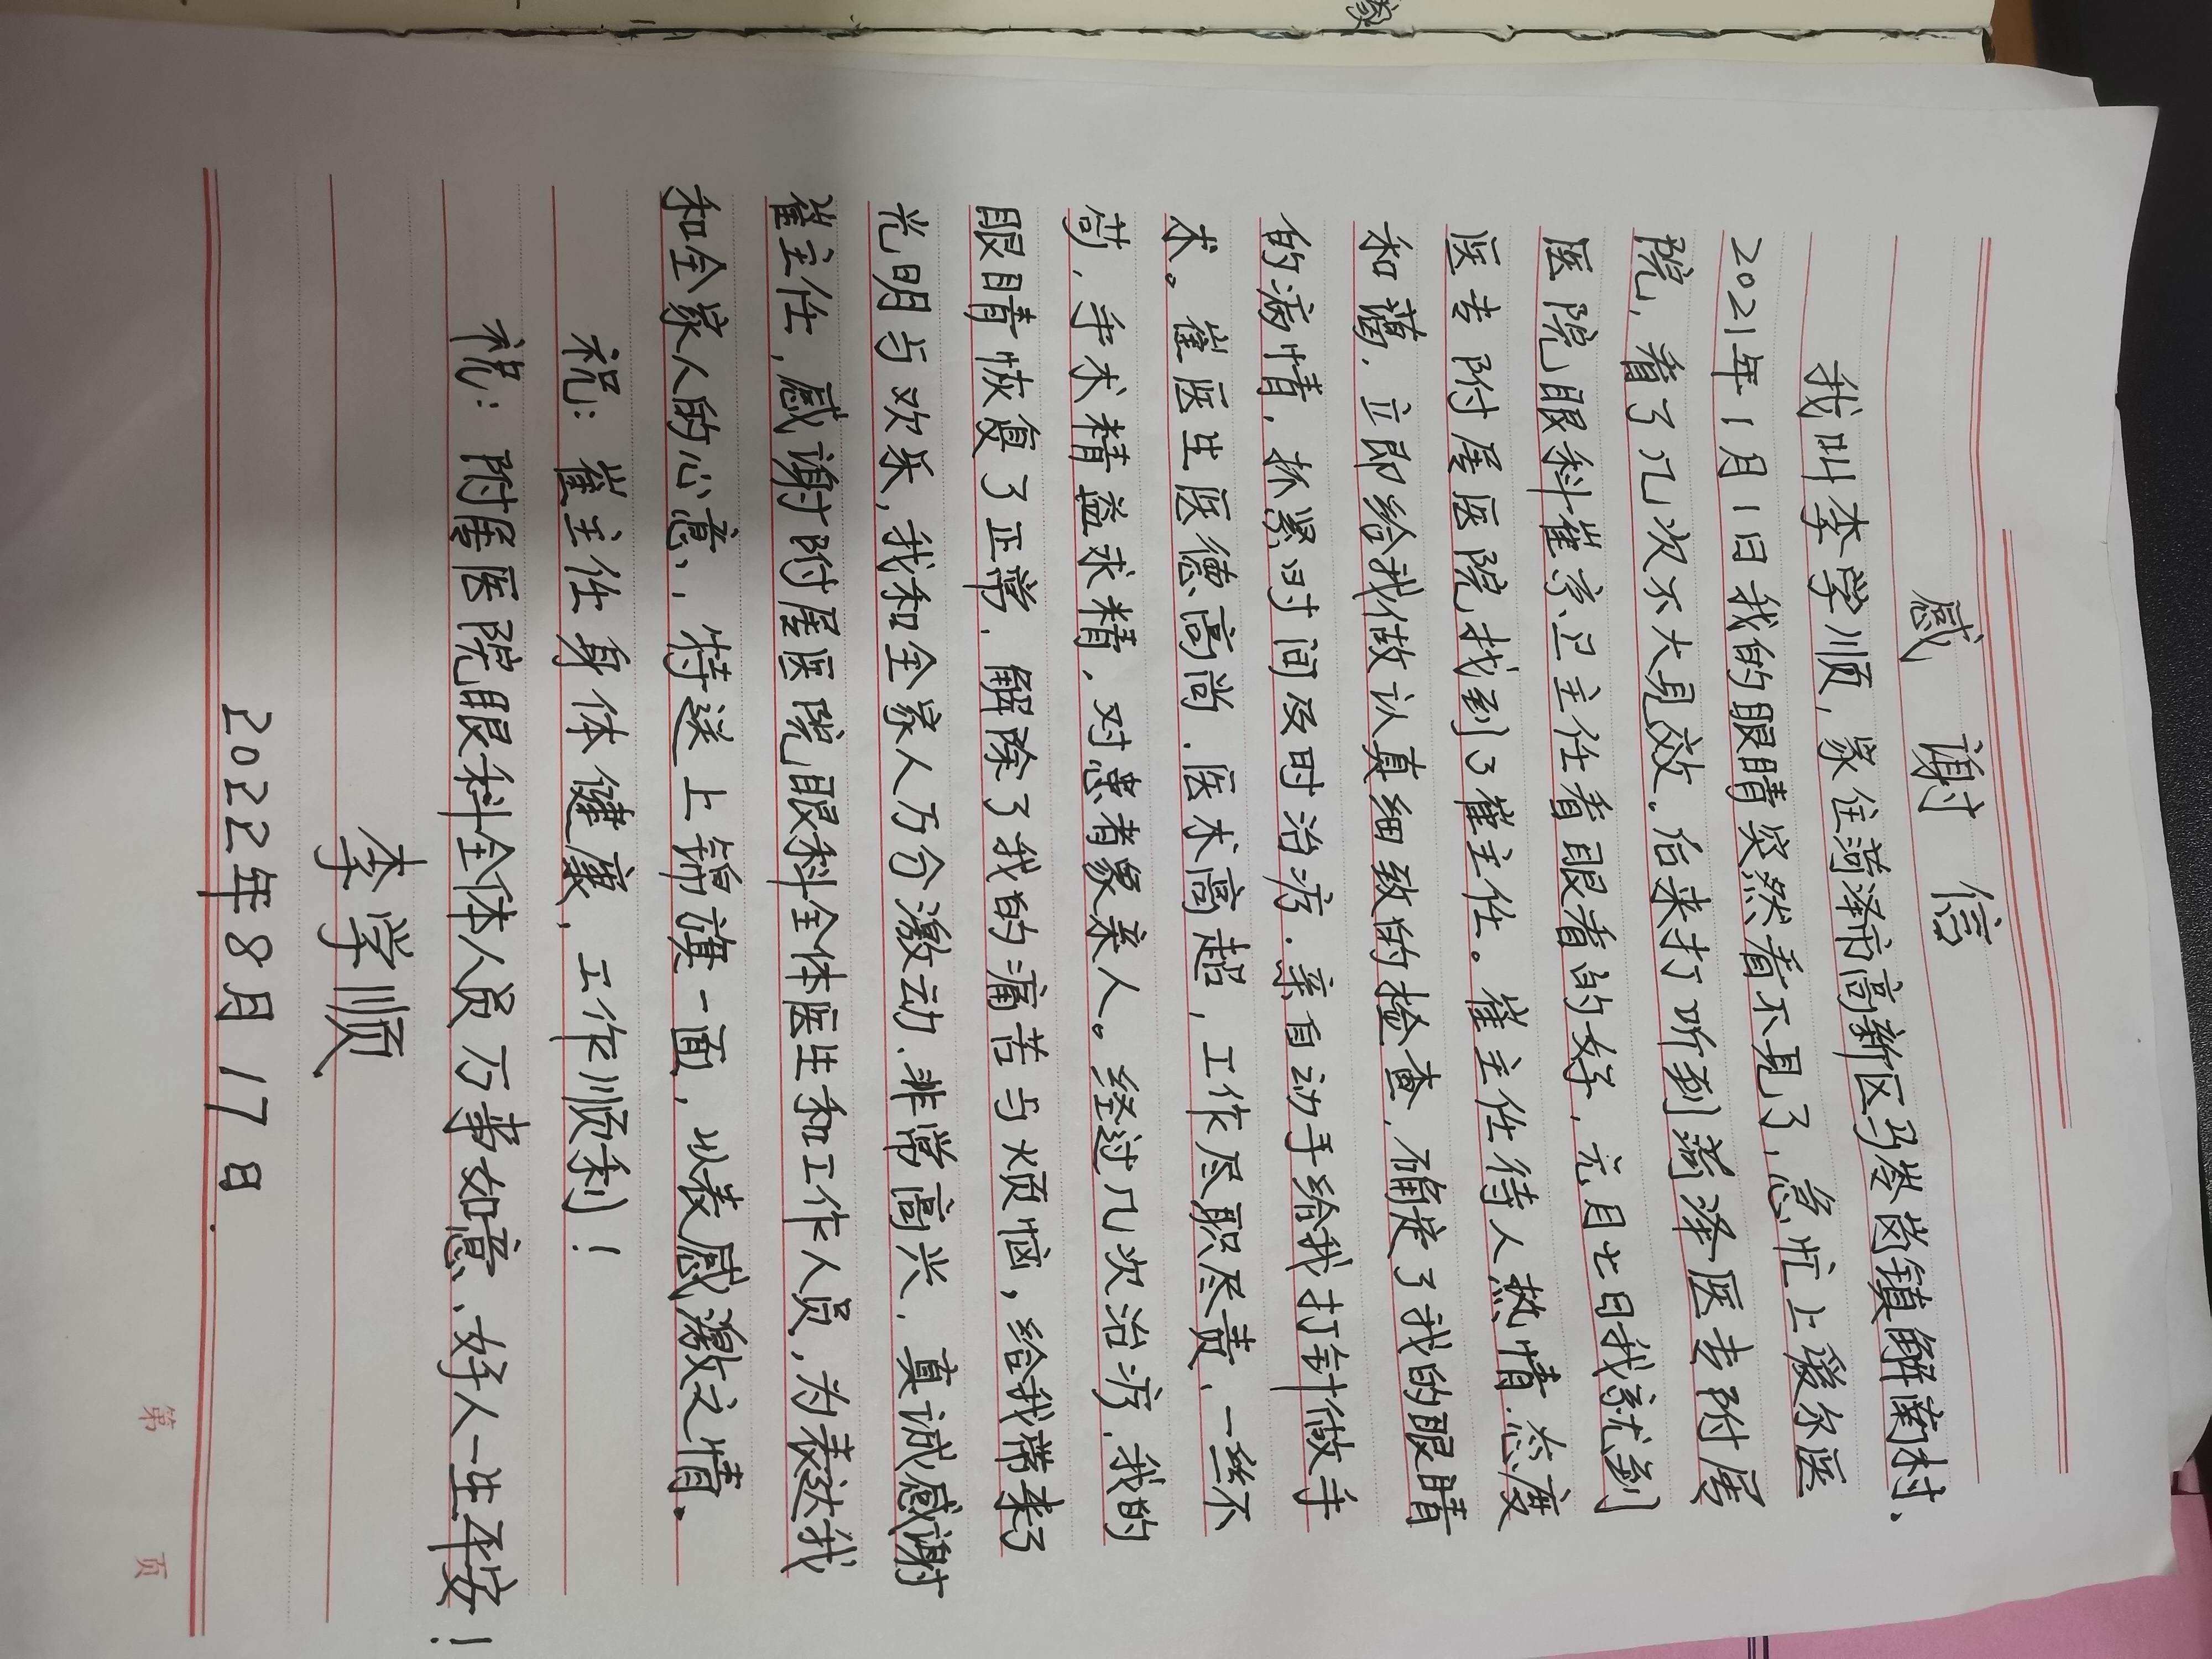 感谢信
我叫李学顺,家住菏泽市高新区马岭岗镇解南村、
2021年1月1日我的眼睛突然看不见了,急忙上爱尔医
院,看了几次不大见效.后来打听到菏泽医专附属
医院眼科崔京卫主任看眼看的好,元月七日我就到
医专附属医院找到了崔主任。崔主任待人热情.态度
和蔼.立即给我做认真细致的检查,确定了我的眼睛
的病情,抓紧时间及时治疗.亲自动手给我打针做手
术。崔医生医德高尚.医术高超,工作尽职尽责、一丝不
苟,手术精益求精,对患者象亲人。经过几次治疗,我的
眼睛恢复了正常.解除了我的痛苦与烦恼,给我带来了
光明与欢乐,我和全家人万分激动.非常高兴.真诚感谢
崔主任,感谢附属医院眼科全体医生和工作人员,为表达我
和全家人的心意,特送上锦旗一面,以表感激之情.
祝:崔主任身体健康,工作顺利!
祝:附属医院眼科全体人员万事如意、好人一生平安!
李学顺
2022年8月17日.
第 页